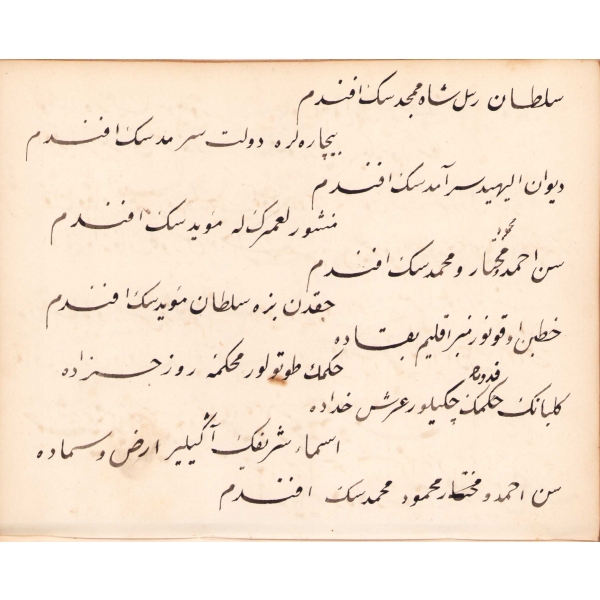 سلطان رسل شاه ممجدسك افندم
بیچاره‌لره دولت سرمدسك افندم
دیوان الهیده سرآمدسك افندم
منشور لعمرك‌له مؤیدسك افندم
سن احمد و محمود
مختار و محمدسك افندم
حقدن بزه سلطان مؤیدسك افندم
خطبن اوقونور منبر اقلیم بقاده
حكمك طوتولور محكمهٔ روز جزاده
كلبانك قدومك چكیلور عرش خداده
اسماء شریفك آكیلیر ارض و سماده
سن احمد و مختار محمود محمدسك افندم